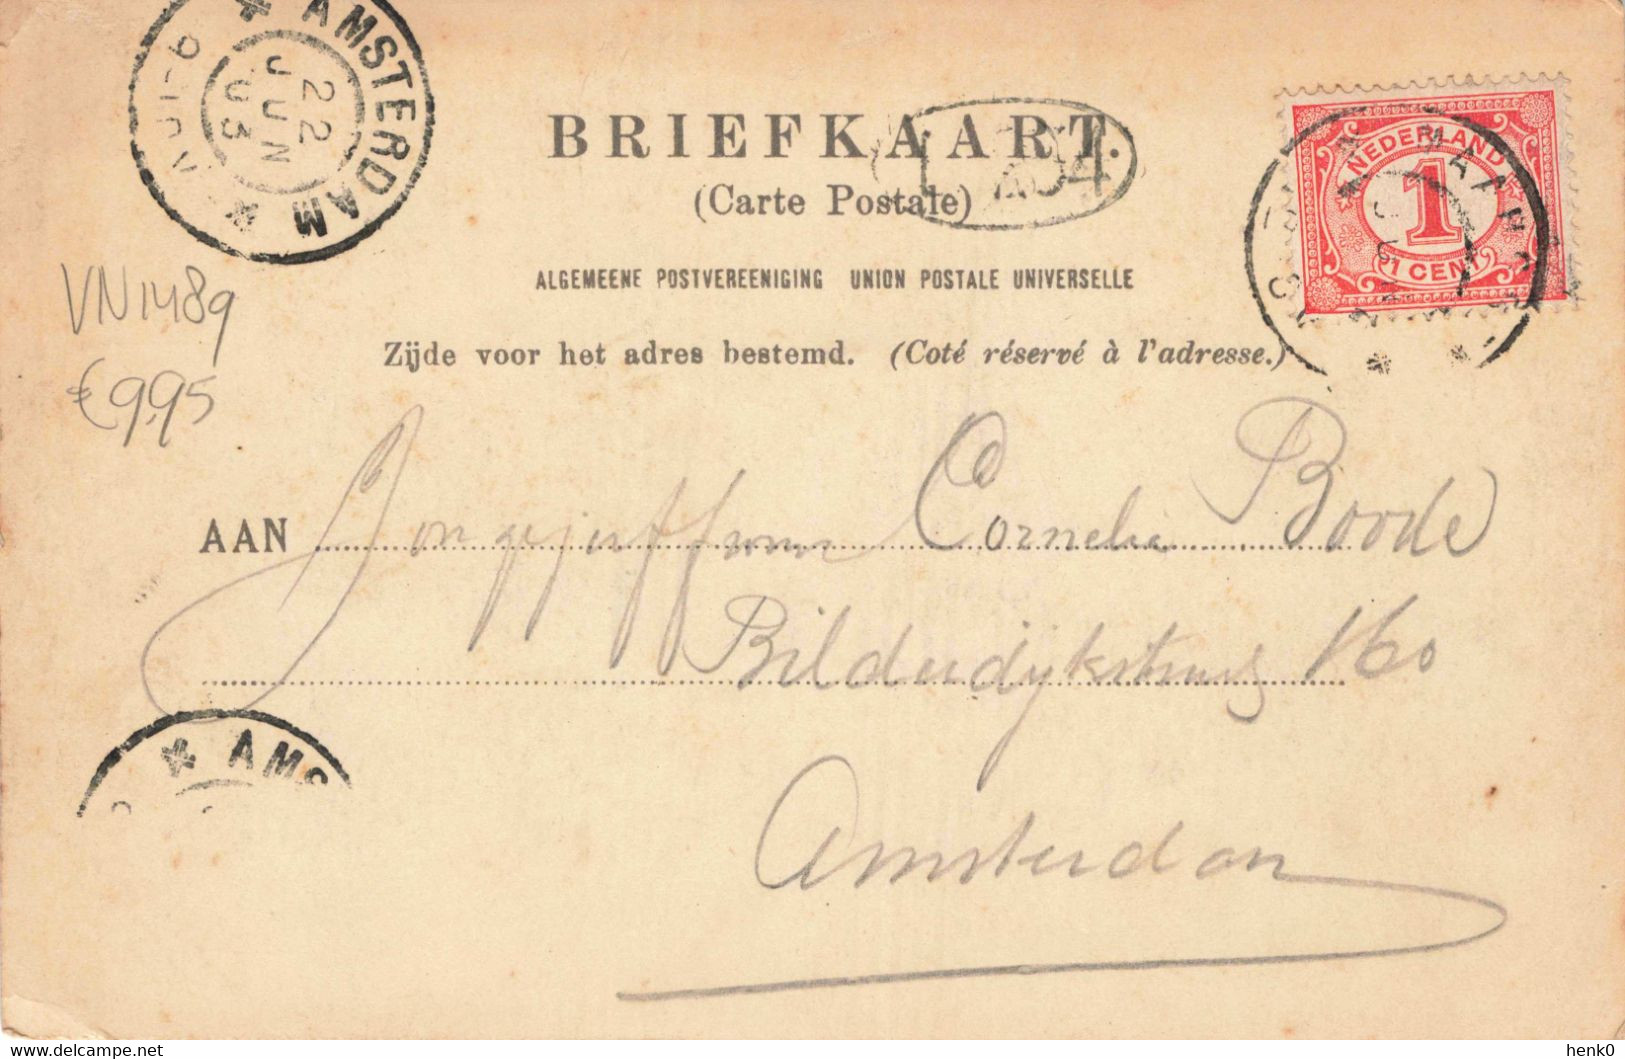 AMSTERDAM
22
JUN
03
BRIEFKAART.
(Carte Postale)
ALGEMEENE POSTVEREENIGING UNION POSTALE UNIVERSELLE
Zijde voor het adres bestemd. (Coté réservé à l'adresse.)
NEDERLAND
1
1 CENT
VN1489
€9,95
AAN Jongejuffrouw Cornelie Boode
Bilderdijkstraat 160
Amsterdam
AMS
henk0